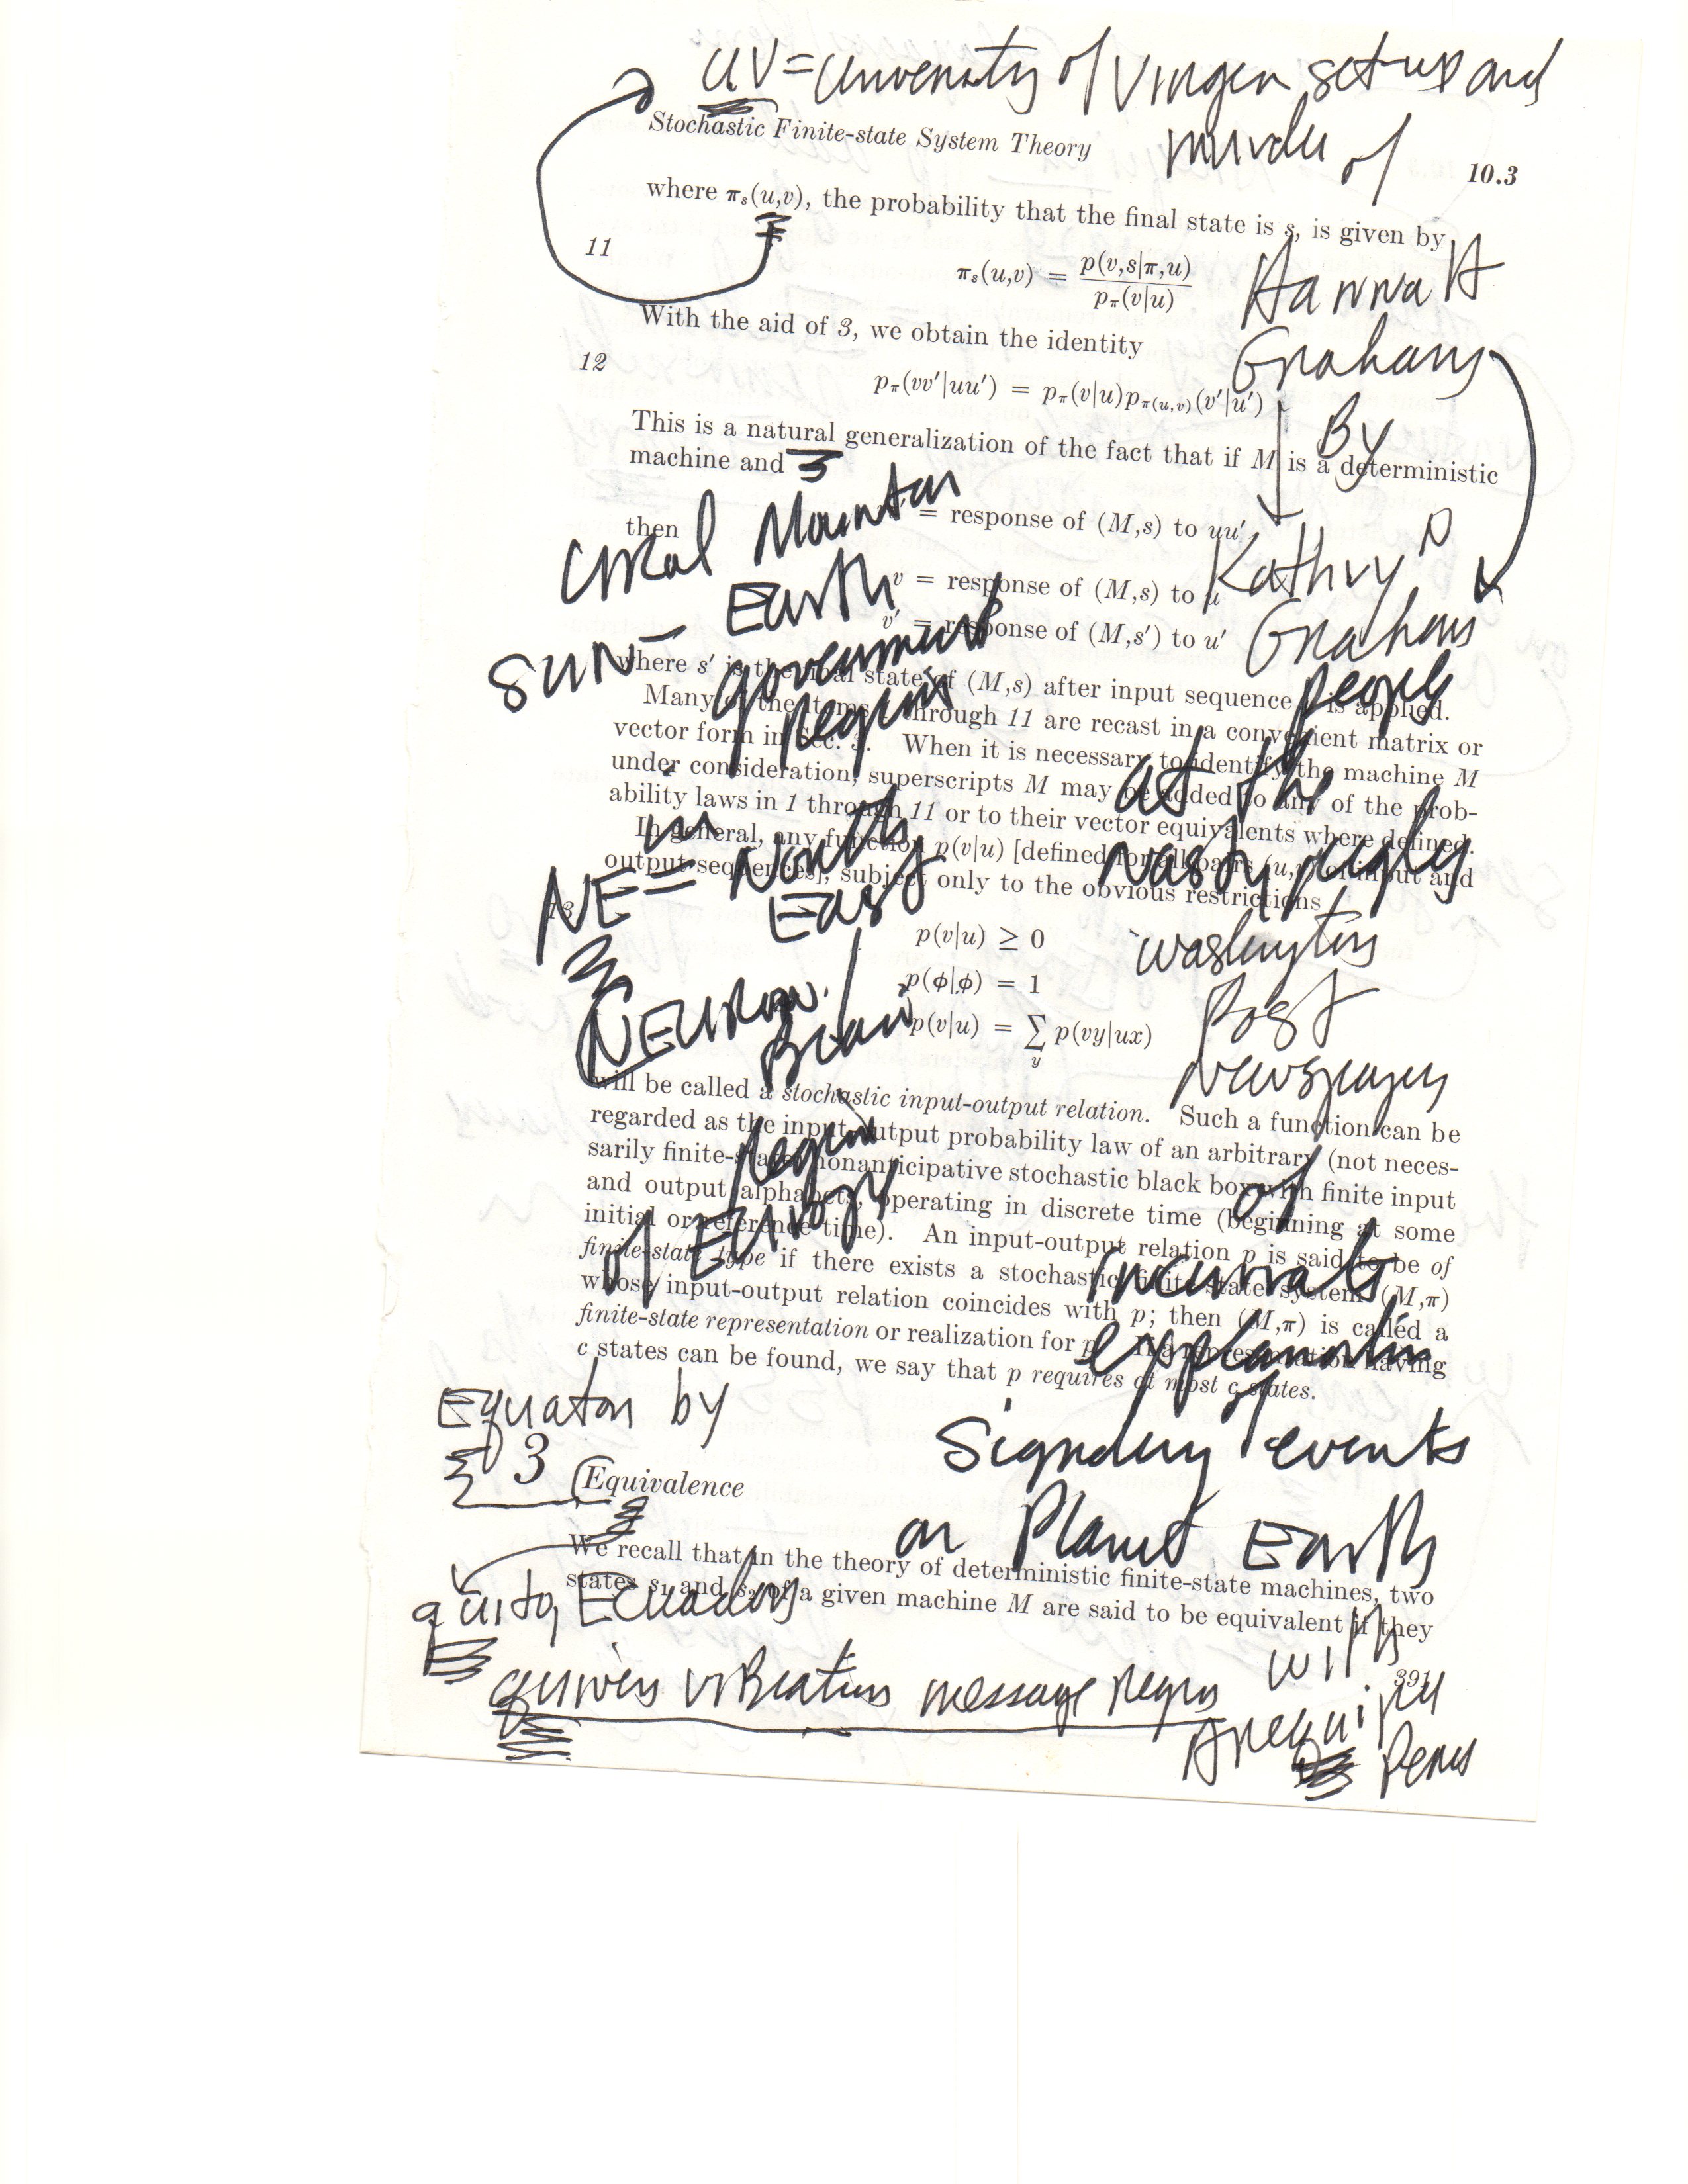 UV = University of Virgen set-up and
murder of
Stochastic Finite-state System Theory
10.3
where πs(u,v), the probability that the final state is s, is given by
11
πs(u,v) = p(v,s|π,u) / pπ(v|u)
HannaH
With the aid of 3, we obtain the identity
Grahams
12
pπ(vv′|uu′) = pπ(v|u)pπ(u,v)(v′|u′)
By
This is a natural generalization of the fact that if M is a deterministic
machine and
Mountain
= response of (M,s) to uu′
then
Kathryn
Earth
v = response of (M,s) to u
v′ = response of (M,s′) to u′
Grahams
SUN –
government
where s′ is the final state of (M,s) after input sequence is applied.
people
region
Many of the items through 11 are recast in a convenient matrix or
vector form in Sec. 3. When it is necessary to identify the machine M
at the
under consideration, superscripts M may be added to any of the prob-
ability laws in 1 through 11 or to their vector equivalents where defined.
in
In general, any function p(v|u) [defined for all pairs (u,v) of input and
output sequences], subject only to the obvious restrictions
NE = North
East
nasty
13
p(v|u) ≥ 0
Washington
p(φ|φ) = 1
Post
NEURON
Brain
p(v|u) = ∑y p(vy|ux)
Newspaper
will be called a stochastic input-output relation. Such a function can be
regarded as the input-output probability law of an arbitrary (not neces-
region
sarily finite-state) nonanticipative stochastic black box with finite input
of
and output alphabets, operating in discrete time (beginning at some
initial or reference time). An input-output relation p is said to be of
of
finite-state type if there exists a stochastic finite-state system (M,π)
whose input-output relation coincides with p; then (M,π) is called a
finite-state representation or realization for p. If a representation having
explanation
c states can be found, we say that p requires at most c states.
Equator by
events
3 Equivalence
on Planet Earth
We recall that in the theory of deterministic finite-state machines, two
states s1 and s2 of a given machine M are said to be equivalent if they
quito, Ecuador
with
391
quivers vibrations message region
Arequipa
Peru